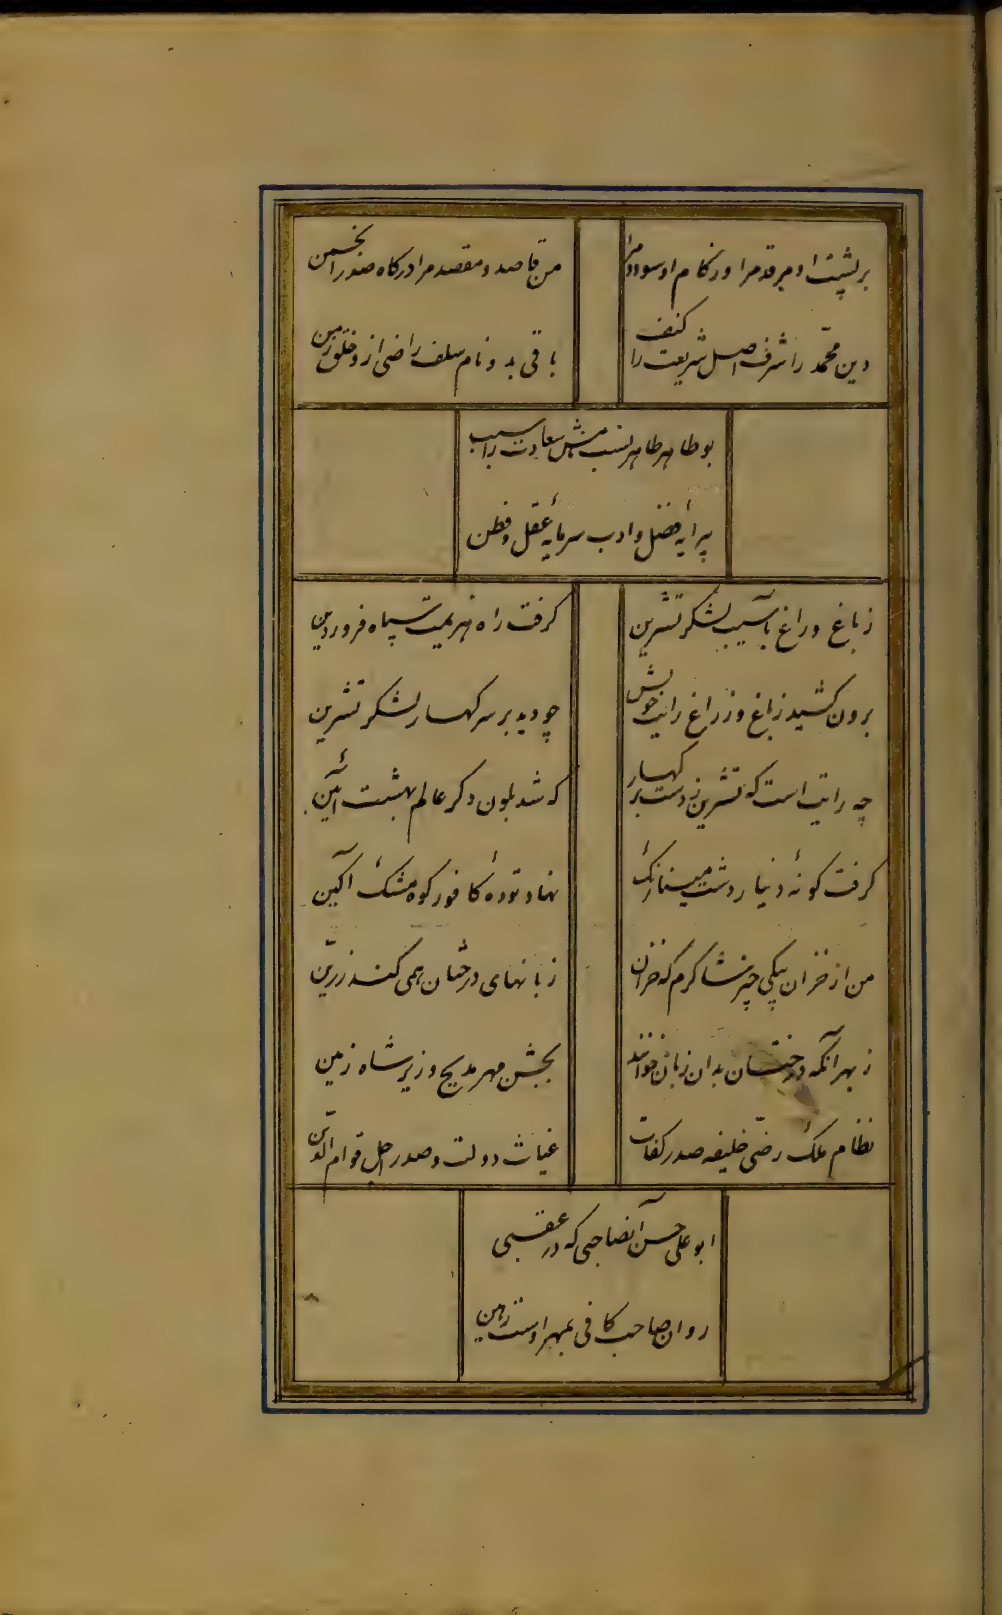 بر پشت او مرقد مرا وز کام او سودد مرا
من قاصد و مقصد مرا درگاه صدر انجمن
دین محمّد را شرف اصل شریعت را کنف
باقی بدو نام سلف راضی ازو خلق زمن
بو طاهر طاهر نسب منش سعادت را سبب
پیرایهٔ فضل و ادب سرمایهٔ عقل و فطن
ز باغ و راغ بآسیب لشکر تشرین
گرفت راه هزیمت سپاه فروردین
برون کشید ز باغ و ز راغ رایت خویش
چو دید بر سر کهسار لشکر تشرین
چه رایت است که تشرین ز دست بر کهسار
که شد بلون دگر عالم بهشت آئین
گرفت گونهٔ دینار دشت مینا رنگ
نهاد تودهٔ کافور کوه مشک آگین
من از خزان بیکی چیز شاکرم که خزان
زبانهای درختان همی کند زرّین
ز بهر آنکه درختان بدان زبان خوانند
بجشن مهر مدیح وزیر شاه زمین
نظام ملک رضیّ خلیفه صدر کفات
غیاث دولت و صدر اجل قوام الدّین
ابو علی حسن آنصاحبی که در عقبی
روان صاحب کافی بمهر اوست رهین